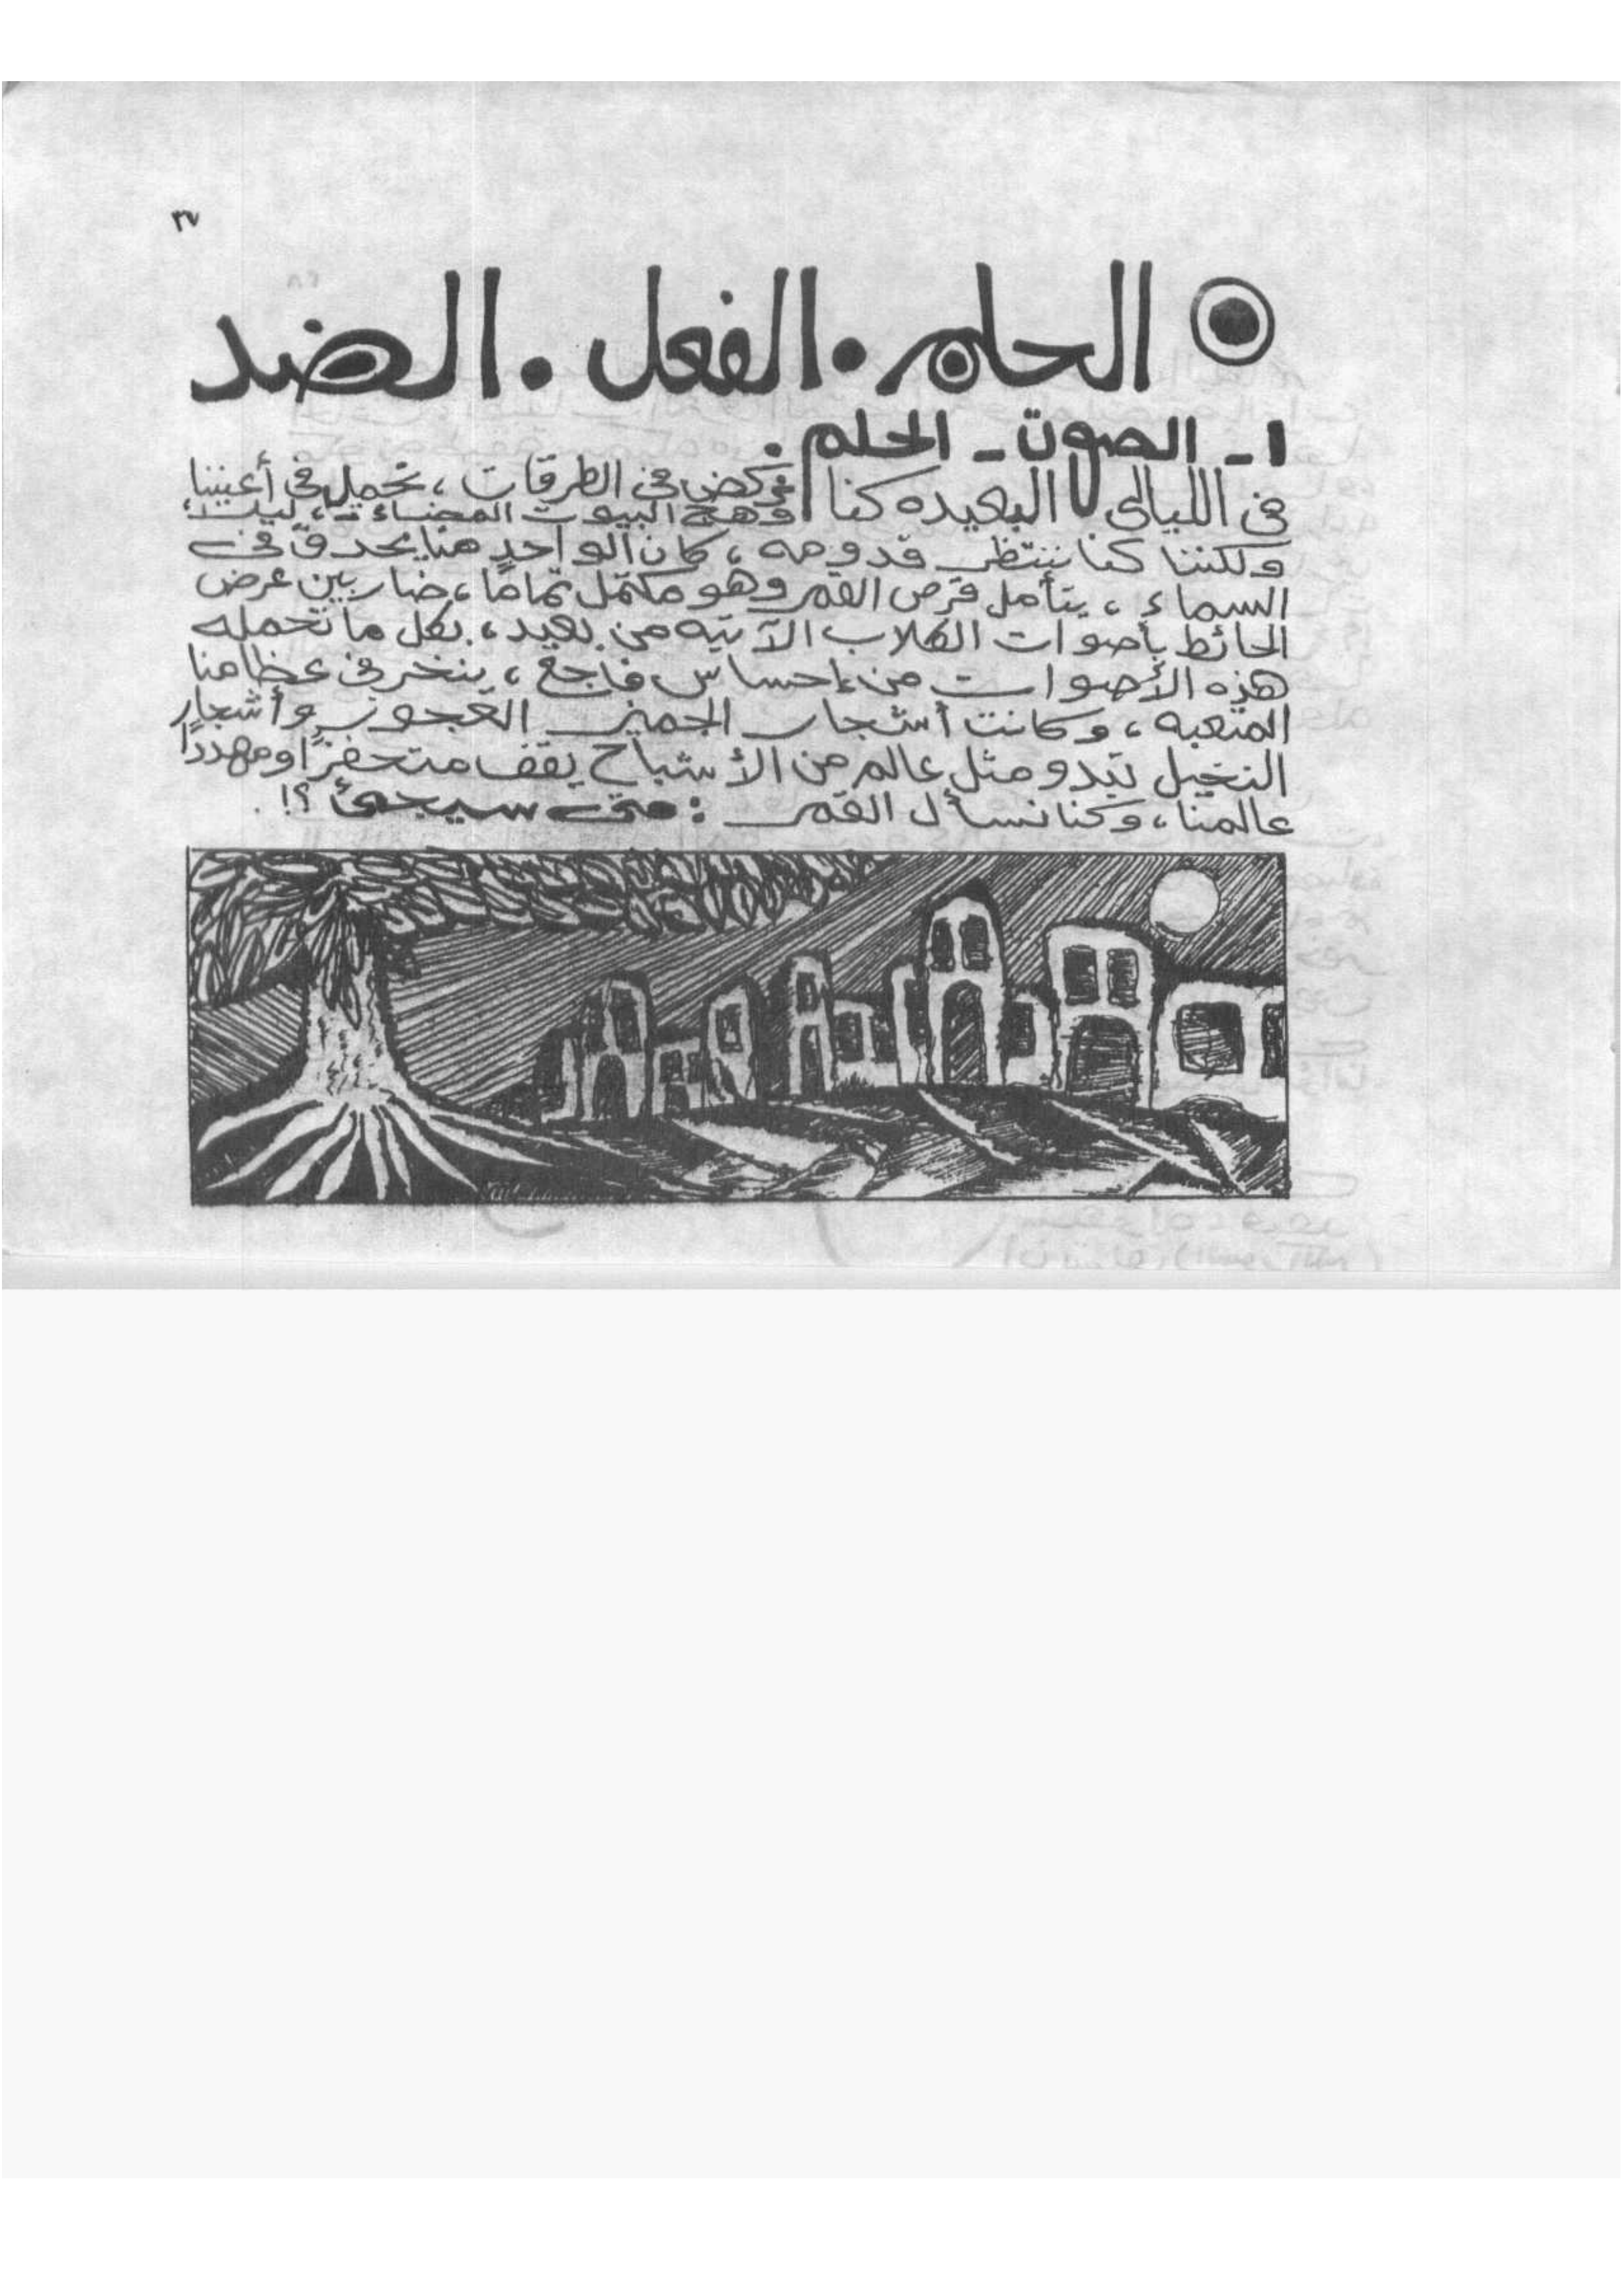 ٣٧
الحلم. الفعل. الضد
١- الصوت - الحلم.
فى الليالى البعيده كنا نركض فى الطرقات، نحمل فى أعيننا
وهج البيوت المضاءة،
ولكننا كنا ننتظر قدومه، كان الواحد منا يحدق فى
السماء، يتأمل قرص القمر وهو مكتمل تمامًا، ضاربين عرض
الحائط بأصوات الكلاب الآتيه من بعيد، بكل ما تحمله
هذه الأصوات من إحساس فاجع، ينخر فى عظامنا
المتعبه، وكانت أشجار الجميز العجوز وأشجار
النخيل تبدو مثل عالم من الأشباح يقف متحفزًا ومهددًا
عالمنا، وكنا نسأل القمر : متى سيجئ ؟!.